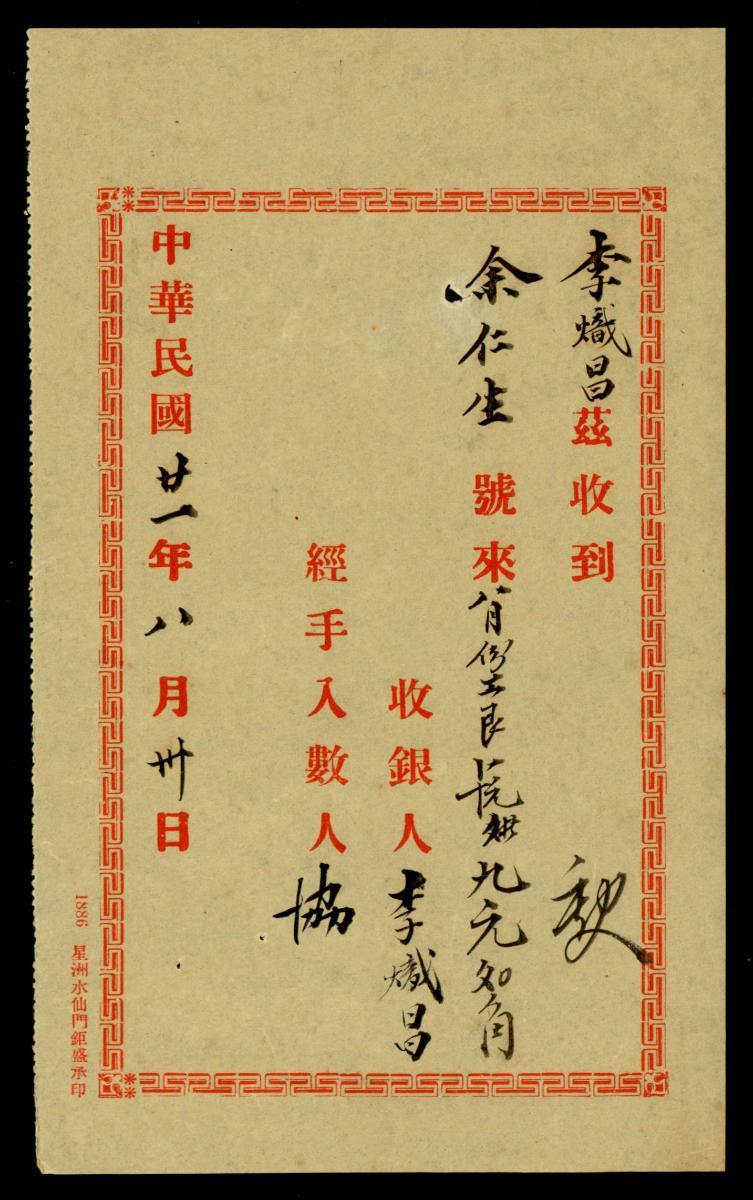 李熾昌茲收到
余仁生號來八月份工艮九元角
收銀人李熾昌
經手入數人協
中華民國廿一年八月卅日
1886 星洲水仙門鉅盛承印